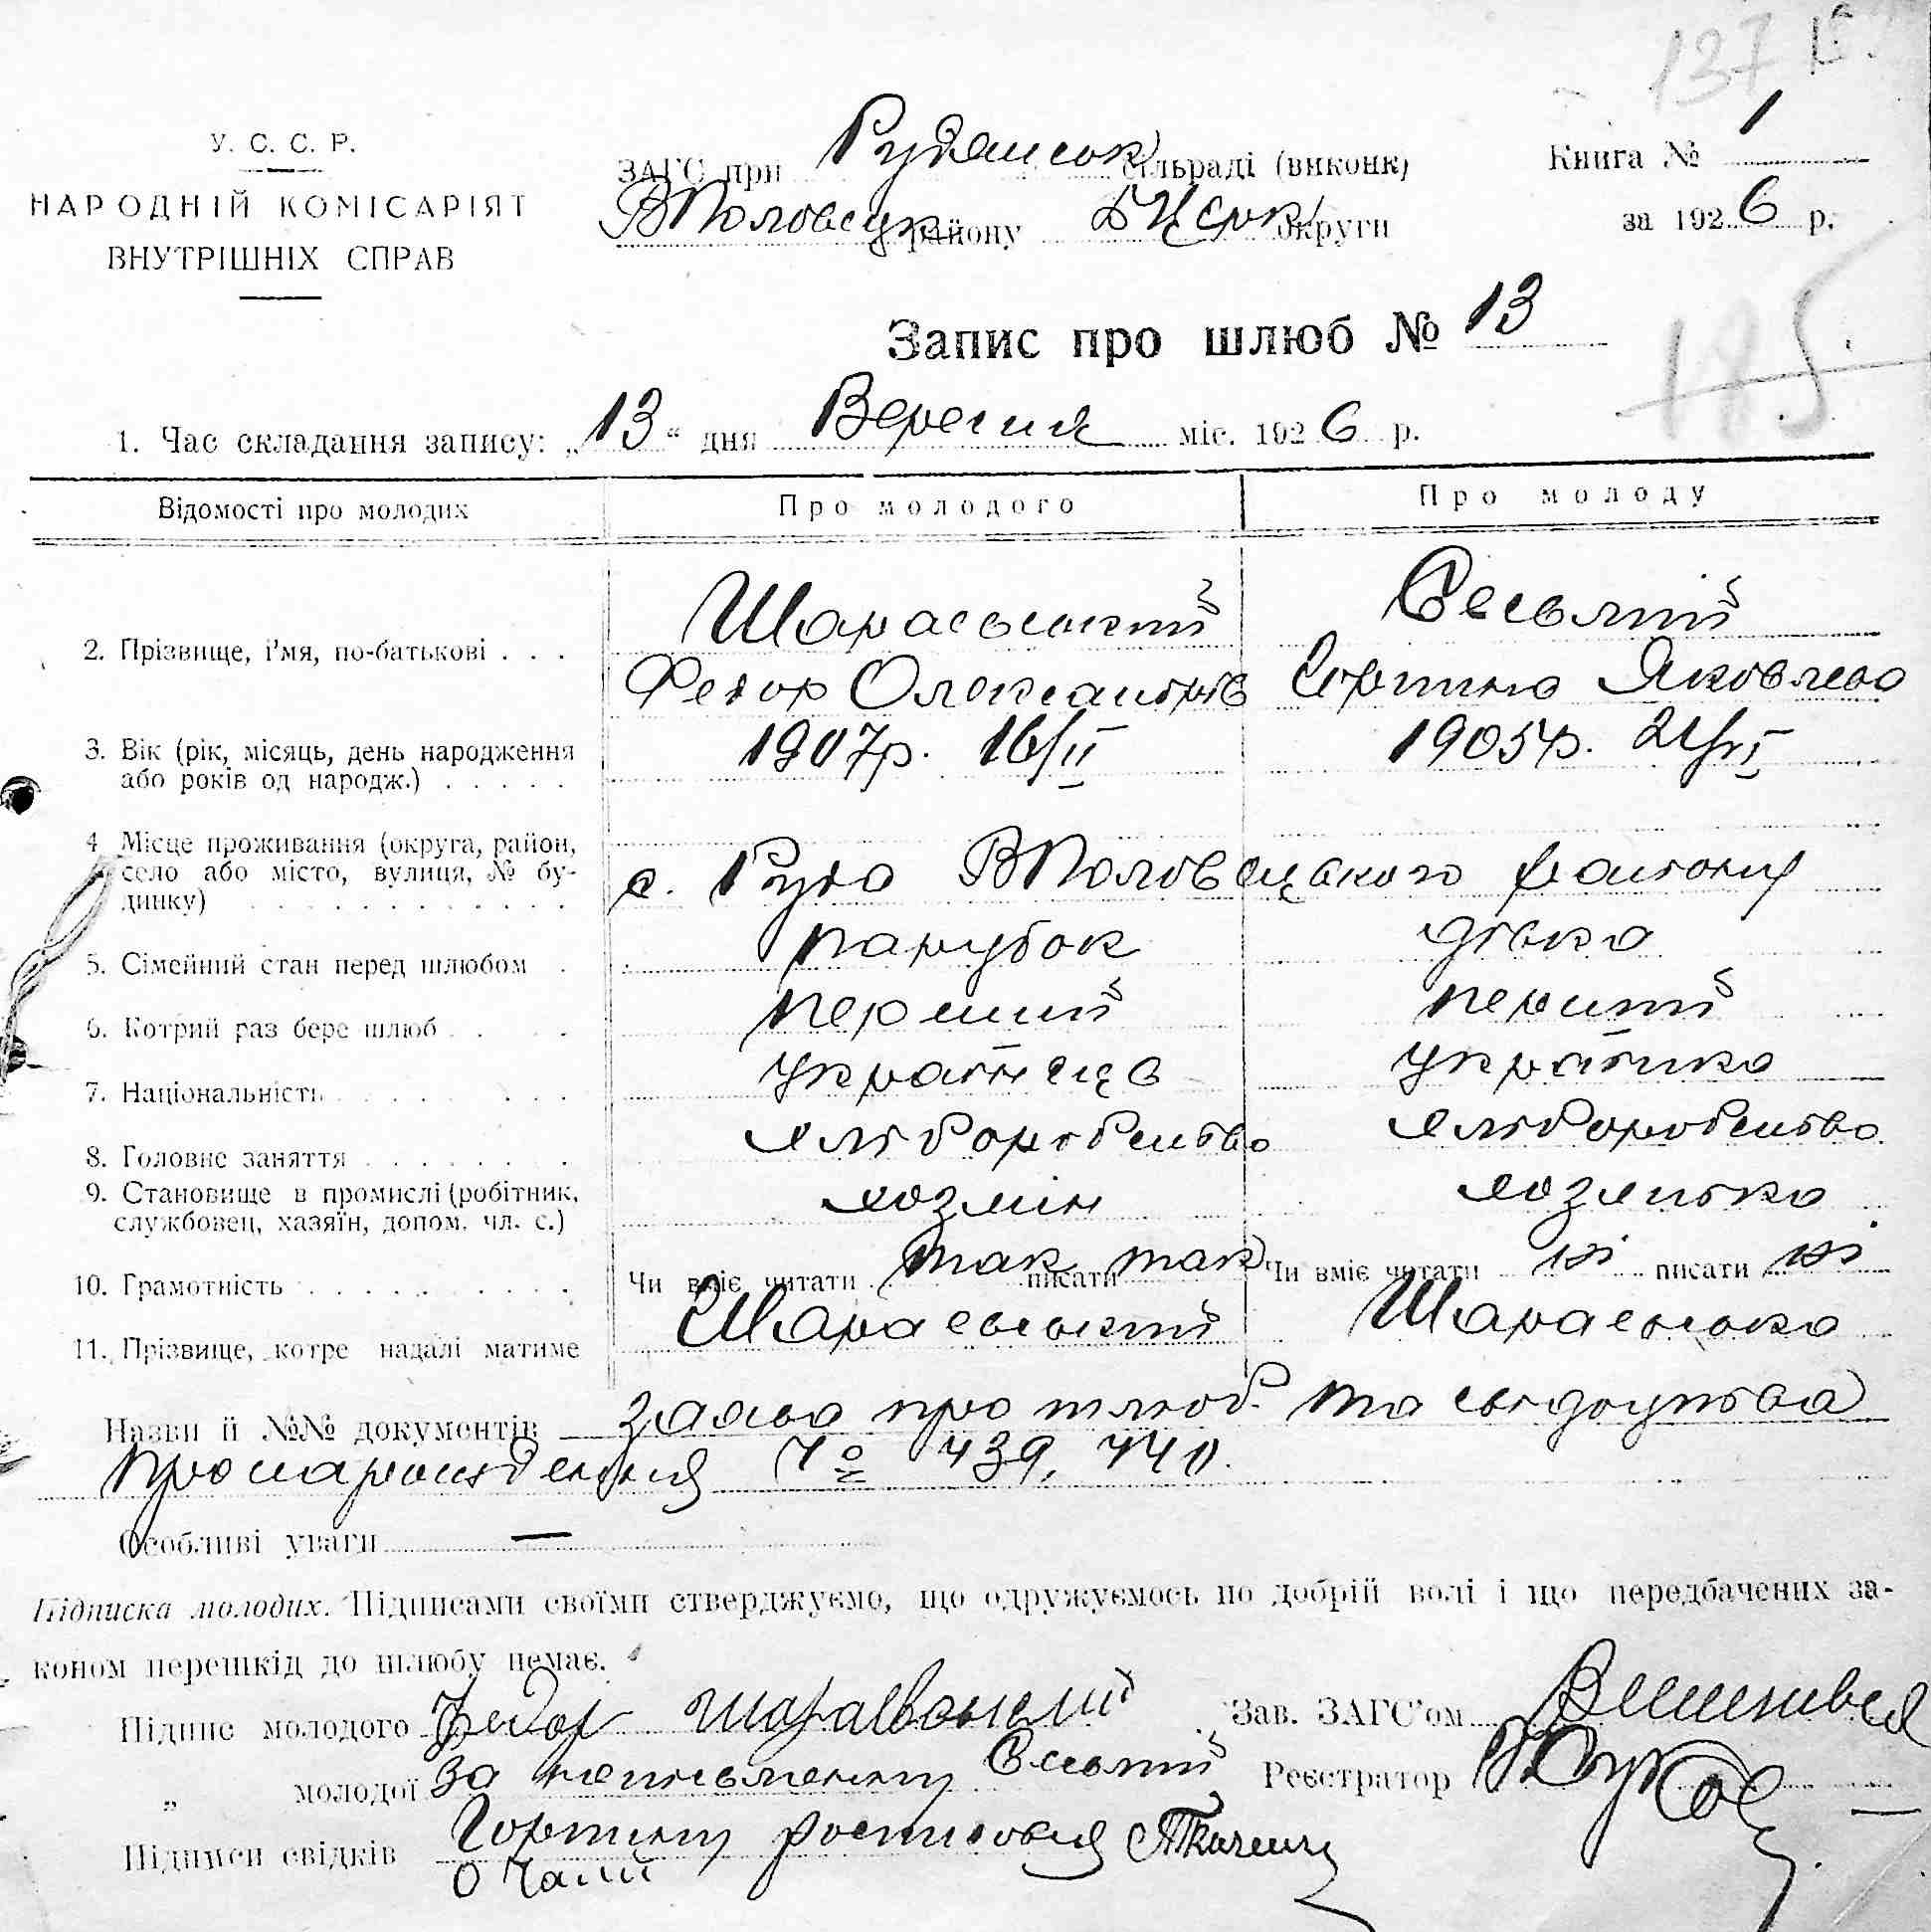 137
У. С. С. Р.
НАРОДНІЙ КОМІСАРІЯТ
ВНУТРІШНІХ СПРАВ
ЗАГС при Рудянськ сільраді (виконк)
ВПоловецьк району БЦерк округи
Книга № 1
за 1926 р.
Запис про шлюб № 13
1. Час складання запису: „13“ дня Вересня міс. 1926 р.
Відомості про молодих
Про молодого
Про молоду
2. Прізвище, і'мя, по-батькові . . .
Шараєвський
Федор Олександрів
Яковлева
3. Вік (рік, місяць, день народження
або років од народж.) . . . . .
1907р. 16/II
1905р.
4 Місце проживання (округа, район,
село або місто, вулиця, № бу-
динку) . . . . . . . . . . . .
с. Руда ВПоловецького району
5. Сімейний стан перед шлюбом .
парубок
дівка
6. Котрий раз бере шлюб . . .
перший
перший
7. Національність . . . . . . .
українець
українка
8. Головне заняття . . . . . . .
хліборобство
хліборобство
9. Становище в промислі (робітник,
службовец, хазяїн, допом. чл. с.)
хозяїн
хозяйка
10. Грамотність . . . . . . . . . .
Чи вміє читати так писати так
Чи вміє читати ні писати ні
11. Прізвище, котре надалі матиме
Шараєвський
Шараєвська
Назви й №№ документів заява про шлюб та свідоцтва
про народження № 439, 440.
Особливі уваги —
Підписка молодих. Підписами своїми стверджуємо, що одружуємось по добрій волі і що передбачених за-
коном перешкід до шлюбу немає.
Підпис молодого Федор Шараєвський
Зав. ЗАГС'ом
„ молодої за неписьменну
Реєстратор
Підписи свідків